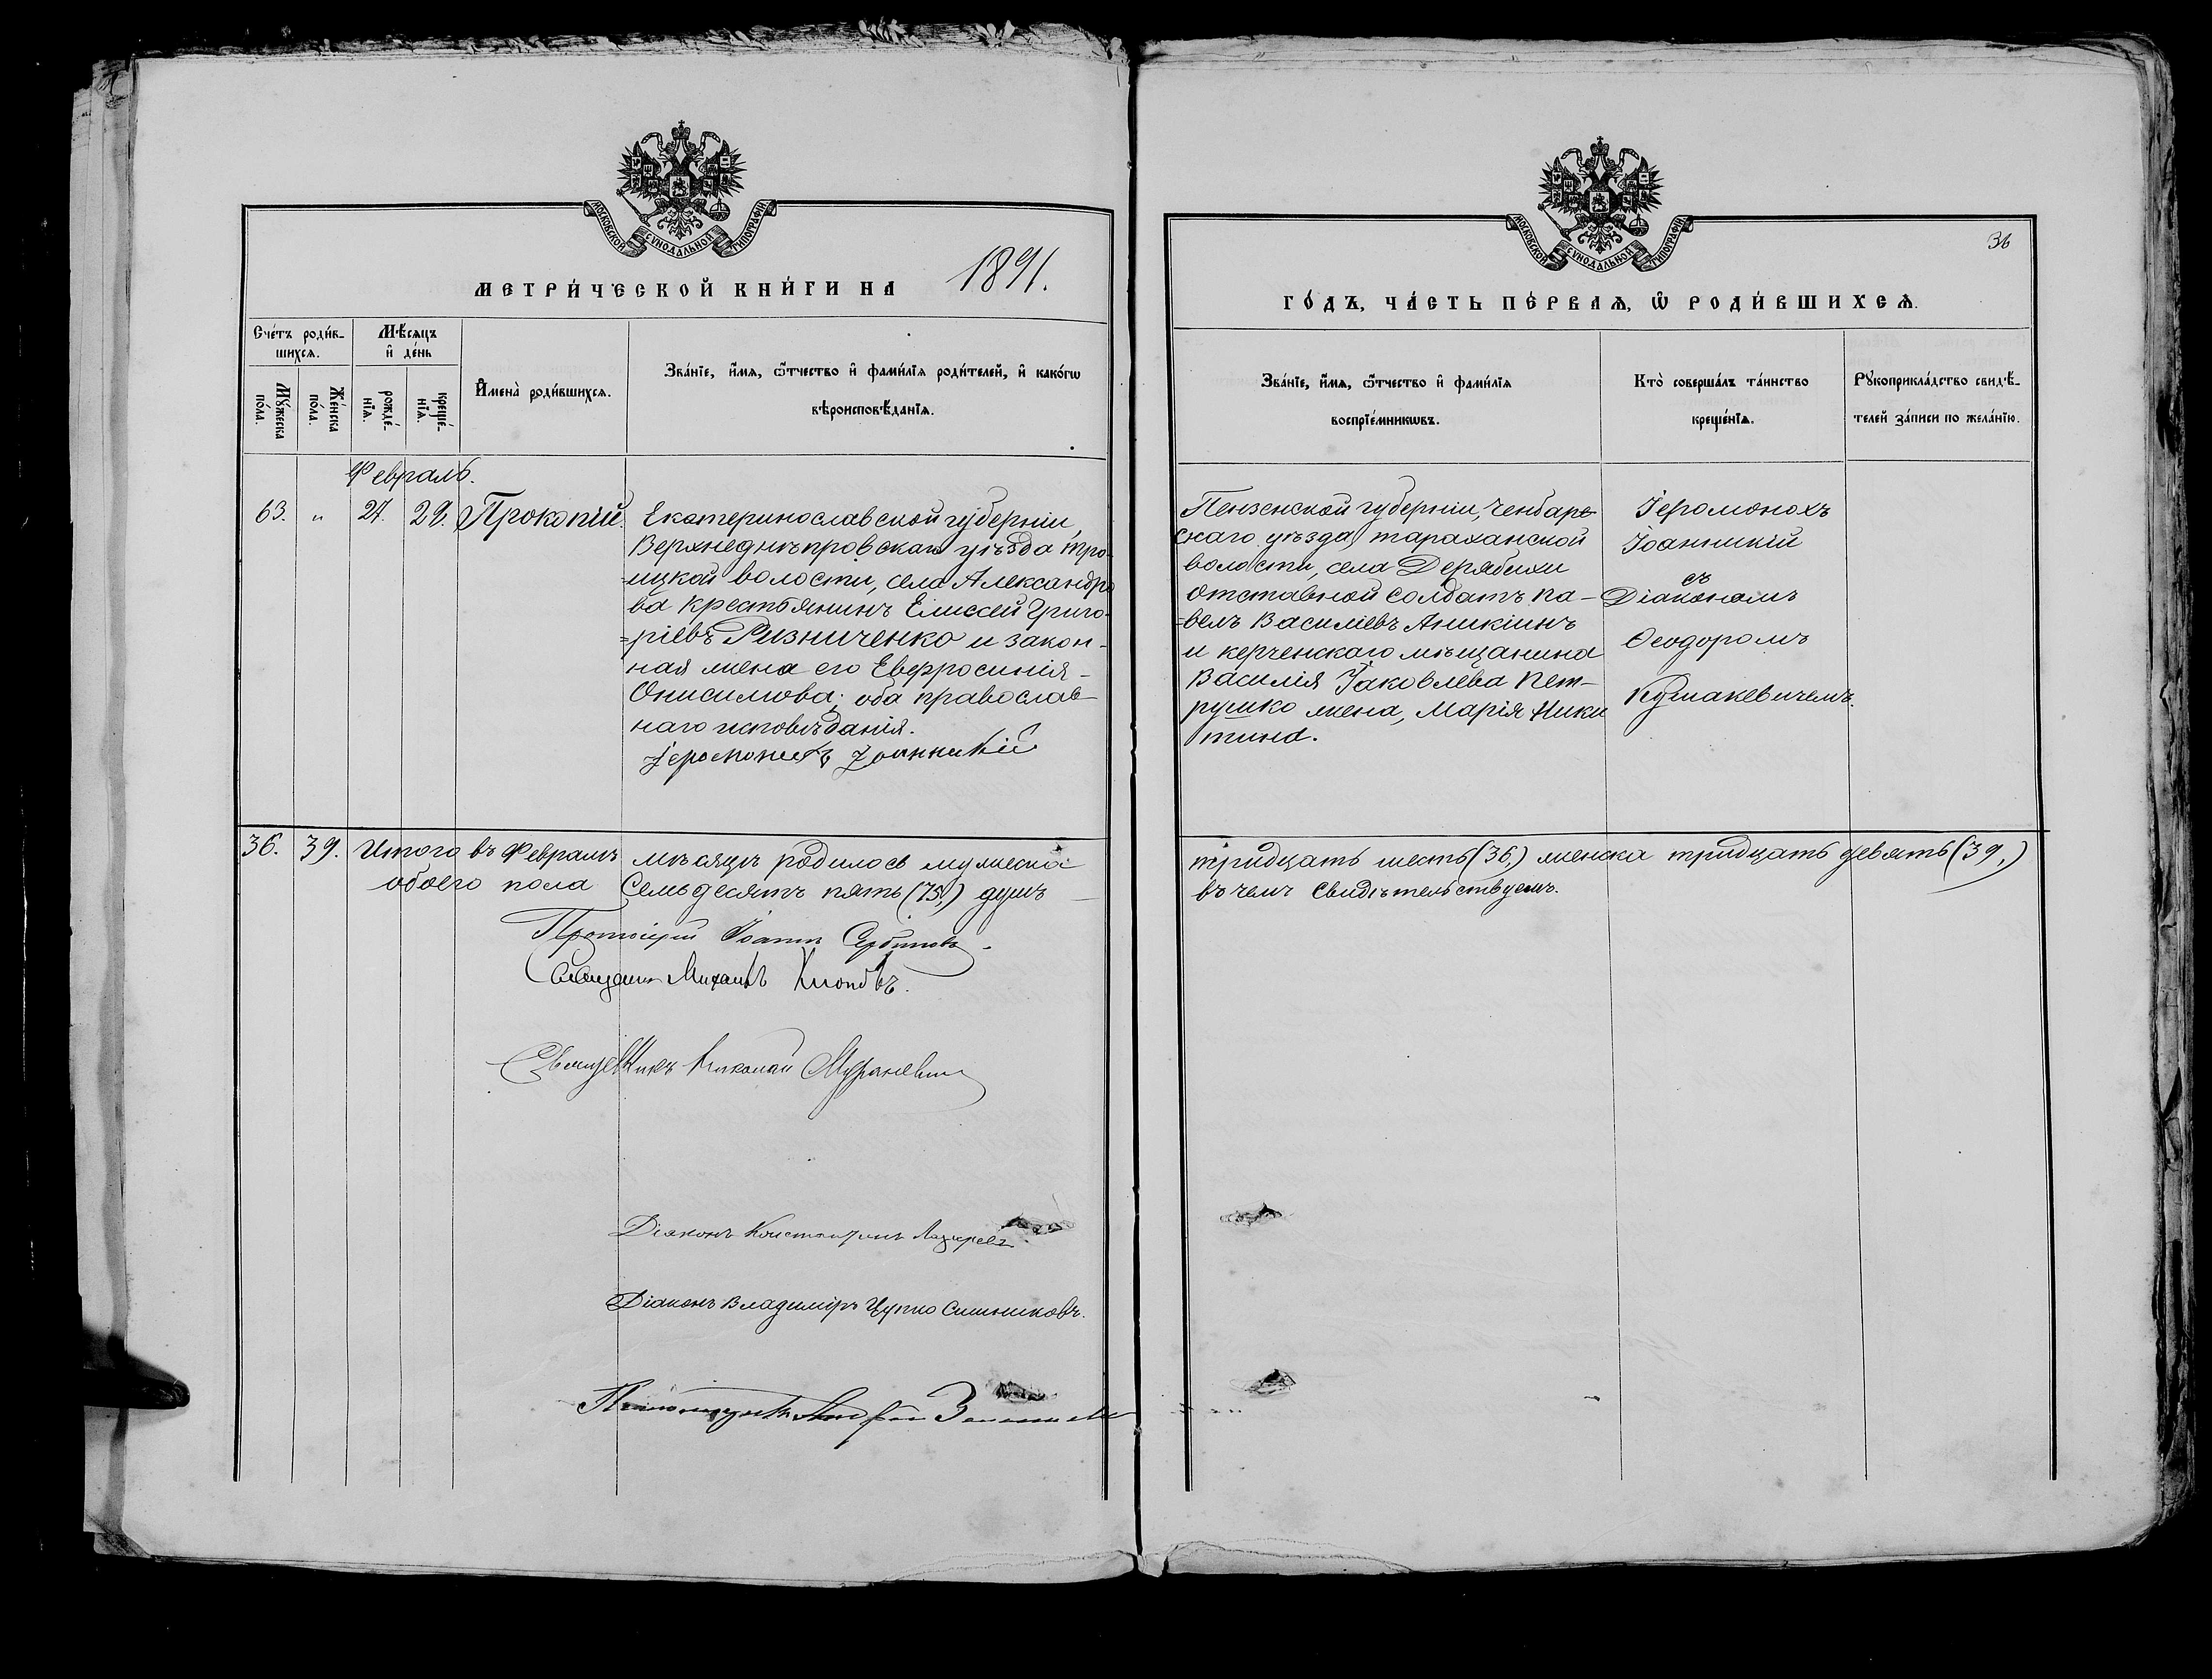 МОСКОВСКОЙ СУНОДАЛЬНОЙ ТИПОГРАФІИ
МЕТРИ́ЧЕСКОЙ КНИ́ГИ НА 1891.
Сче́тъ роди́в-
шихсѧ.
Мꙋ́жеска
по́ла.
Же́нска
по́ла.
Мѣ́сѧцъ
и҆ де́нь
рожде́-
нїѧ.
креще́-
нїѧ.
И҆мена̀ роди́вшихсѧ.
Зва́нїе, и҆́мѧ, ѻ҆́тчество и҆ фами́лїѧ роди́телей, и҆ како́гѡ
вѣроисповѣ́данїѧ.
Февраль.
63. " 27. 29. Прокопій.
Екатеринославской губерніи,
Верхнеднѣпровскаго уѣзда Тро-
ицкой волости, села Александро
ва крестьянинъ Елиссей Григо-
=ріевъ Ризниченко и закон-
ная жена его Евфросинія
Онисимова; оба православ-
наго исповѣданія.
Іеромонахъ Іоанникій
36. 39. Итого въ Февралѣ мѣсяцѣ родилось мужеска
обоего пола Семьдесятъ пять (75,) душъ
Протоіерей Іоаннъ Сербиновъ
Священникъ Михаилъ
Священникъ Николай
Діаконъ Константинъ Лазаревъ
Діаконъ Владиміръ Цупко Ситниковъ.
МОСКОВСКОЙ СУНОДАЛЬНОЙ ТИПОГРАФІИ
36
ГО́ДЪ, ЧА́СТЬ ПЕ́РВАѦ, Ѡ҆ РОДИ́ВШИХСѦ.
Зва́нїе, и҆́мѧ, ѻ҆́тчество и҆ фами́лїѧ
воспрїе́мникѡвъ.
Кто̀ соверша́лъ та́инство
креще́нїѧ.
Рꙋкоприкла́дство свидѣ́-
телей за́писи по жела́нїю.
Пензенской губерніи, Чембар-
скаго уѣзда, тараханской
волости, села Дерябихи
отставной солдатъ Па-
=велъ Василіевъ Аникіинъ
и керченскаго мѣщанина
Василія Іаковлева Пет-
рушко жена, Марія Ники
тина.
Іеромонохъ
Іоанникій
съ
Діакономъ
Ѳеодоромъ
Кушакевичемъ.
тридцать шесть (36,) женска тридцать девять (39,)
въ чемъ свидѣтельствуемъ.